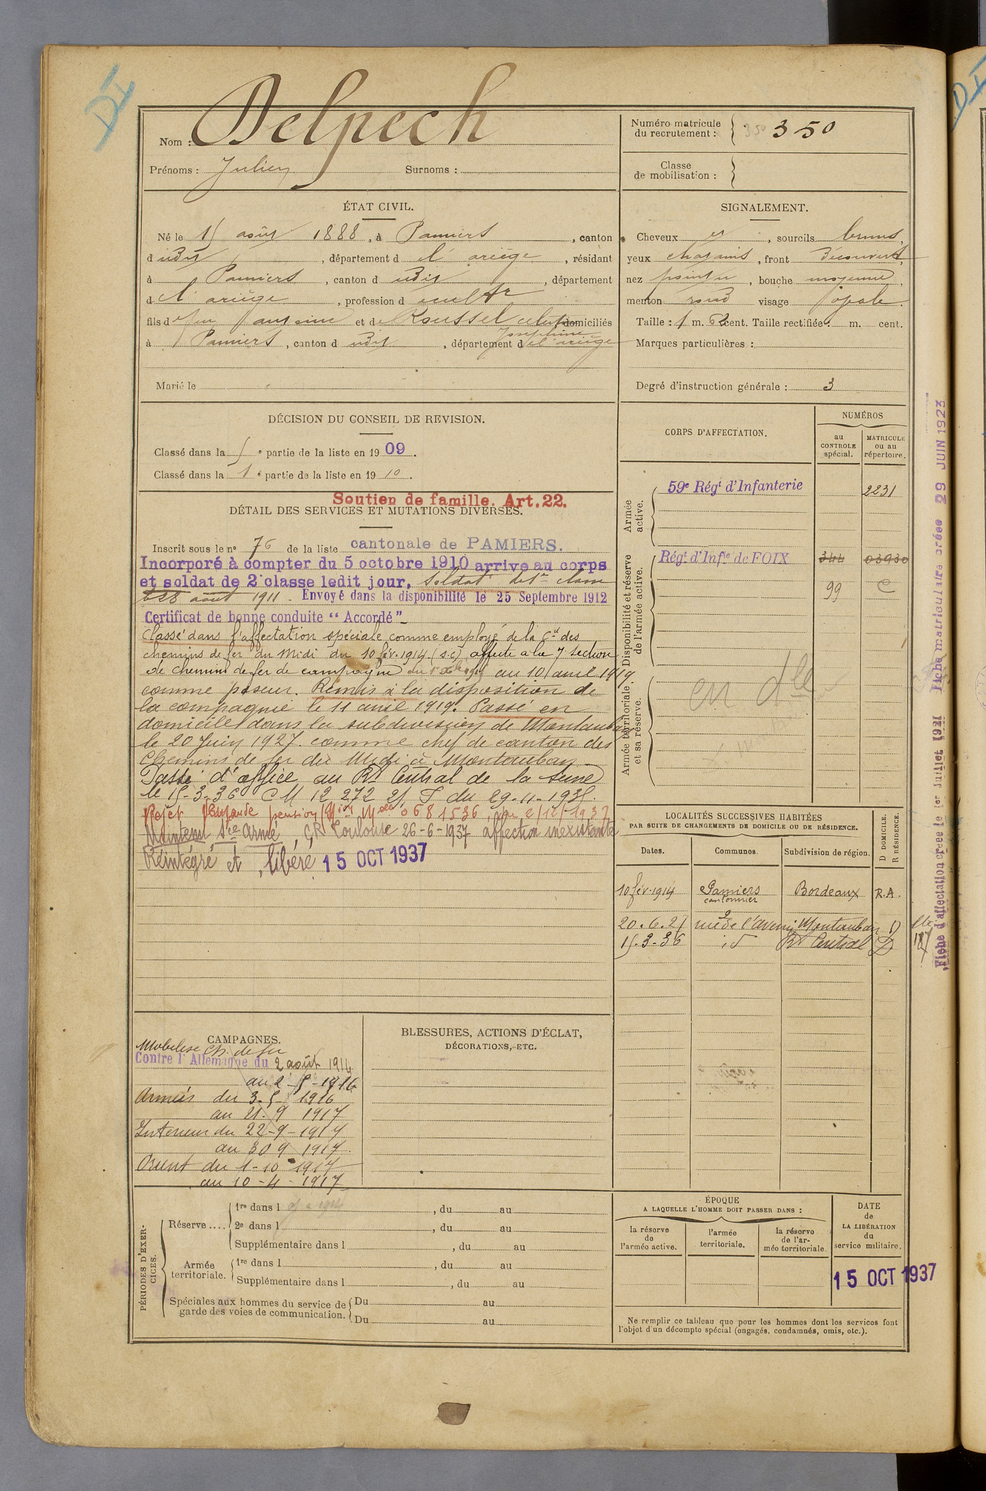 DI
Nom : Delpech
Prénoms : Julien Surnoms :
Numéro matricule du recrutement : 350 350
Classe de mobilisation :
ÉTAT CIVIL.
Né le 15 août 1888, à Pamiers, canton
dudit, département de l'ariège, résidant
à Pamiers, canton dudit, département
de l'ariège, profession d cultr
fils de feu antoine et de Roussel domiciliés
Josephine
à Pamiers, canton dudit, département de l'ariège
Marié le
SIGNALEMENT.
Cheveux et, sourcils bruns,
yeux chatains, front découvert,
nez pointu, bouche moyenne,
menton rond visage ovale.
Taille : 1 m. 62 cent. Taille rectifiée : m. cent.
Marques particulières :
Degré d'instruction générale : 3
DÉCISION DU CONSEIL DE REVISION.
Classé dans la 5e partie de la liste en 1909.
Classé dans la 1e partie de la liste en 1910.
Soutien de famille. Art. 22.
DÉTAIL DES SERVICES ET MUTATIONS DIVERSES.
Inscrit sous le no 76 de la liste cantonale de PAMIERS.
Incorporé à compter du 5 octobre 1910 arrive au corps
et soldat de 2e classe ledit jour, Soldat de 1re classe
le 28 août 1911. Envoyé dans la disponibilité le 25 Septembre 1912
Certificat de bonne conduite "Accordé"
Classé dans l'affectation spéciale comme employé de la Cie des
chemins de fer du Midi du 10 fév. 1914 (s.s) affecté à la 7 section
de chemins de fer de campagne au 10 avril 1919.
comme poseur. Remis à la disposition de
la compagnie le 11 avril 1919. Passé en
domicile dans la subdivision de Montauban
le 20 Juin 1927. comme chef de canton des
Chemins de fer du Midi à Montauban
Passé d'office au Rt Central de la Seine
le 15-3-36 CM 12 272 2/S du 29-11-1935.
Rejet demande pension
Maintenu Sce Armé, CR Toulouse 26-6-1937 affection inexistante
Réintégré et libéré 15 OCT 1937
CORPS D'AFFECTATION.
NUMÉROS
au CONTROLE spécial.
MATRICULE ou au répertoire.
Armée active.
59e Régt d'Infanterie 2231
Disponibilité et réserve de l'armée active.
Régt d'Infie de FOIX 344 03930
99 C
Armée territoriale et sa réserve.
en dlle
LOCALITÉS SUCCESSIVES HABITÉES
PAR SUITE DE CHANGEMENTS DE DOMICILE OU DE RÉSIDENCE.
Dates. Communes. Subdivision de région. D DOMICILE. R RÉSIDENCE.
10 fév. 1914 Pamiers Bordeaux R.A.
cantonnier
20.6.27 rue de l'avenir Montauban D
15-3-36 id Rt Central D
CAMPAGNES.
Mobilisé ch. de fer
Contre l'Allemagne du 2 août 1914
au 2-5-1916
Armées du 3-5-1916
au 21-9 1917
Intérieur du 22-9-1917
au 30 9 1917
Orient du 1-10-1917
au 10-4-1917
BLESSURES, ACTIONS D'ÉCLAT,
DÉCORATIONS, ETC.
PÉRIODES D'EXERCICES.
Réserve....
1re dans l, du au
2e dans l, du au
Supplémentaire dans l, du au
Armée territoriale.
1re dans l, du au
Supplémentaire dans l, du au
Spéciales aux hommes du service de garde des voies de communication.
Du au
Du au
ÉPOQUE
A LAQUELLE L'HOMME DOIT PASSER DANS :
la réserve de l'armée active.
l'armée territoriale.
la réserve de l'armée territoriale
DATE de LA LIBÉRATION du service militaire.
15 OCT 1937
Ne remplir ce tableau que pour les hommes dont les services font
l'objet d'un décompte spécial (engagés, condamnés, omis, etc.).
Fiche d'affectation créée le 1er Juillet 1921 Fiche matriculaire créée 29 JUIN 1923
DI